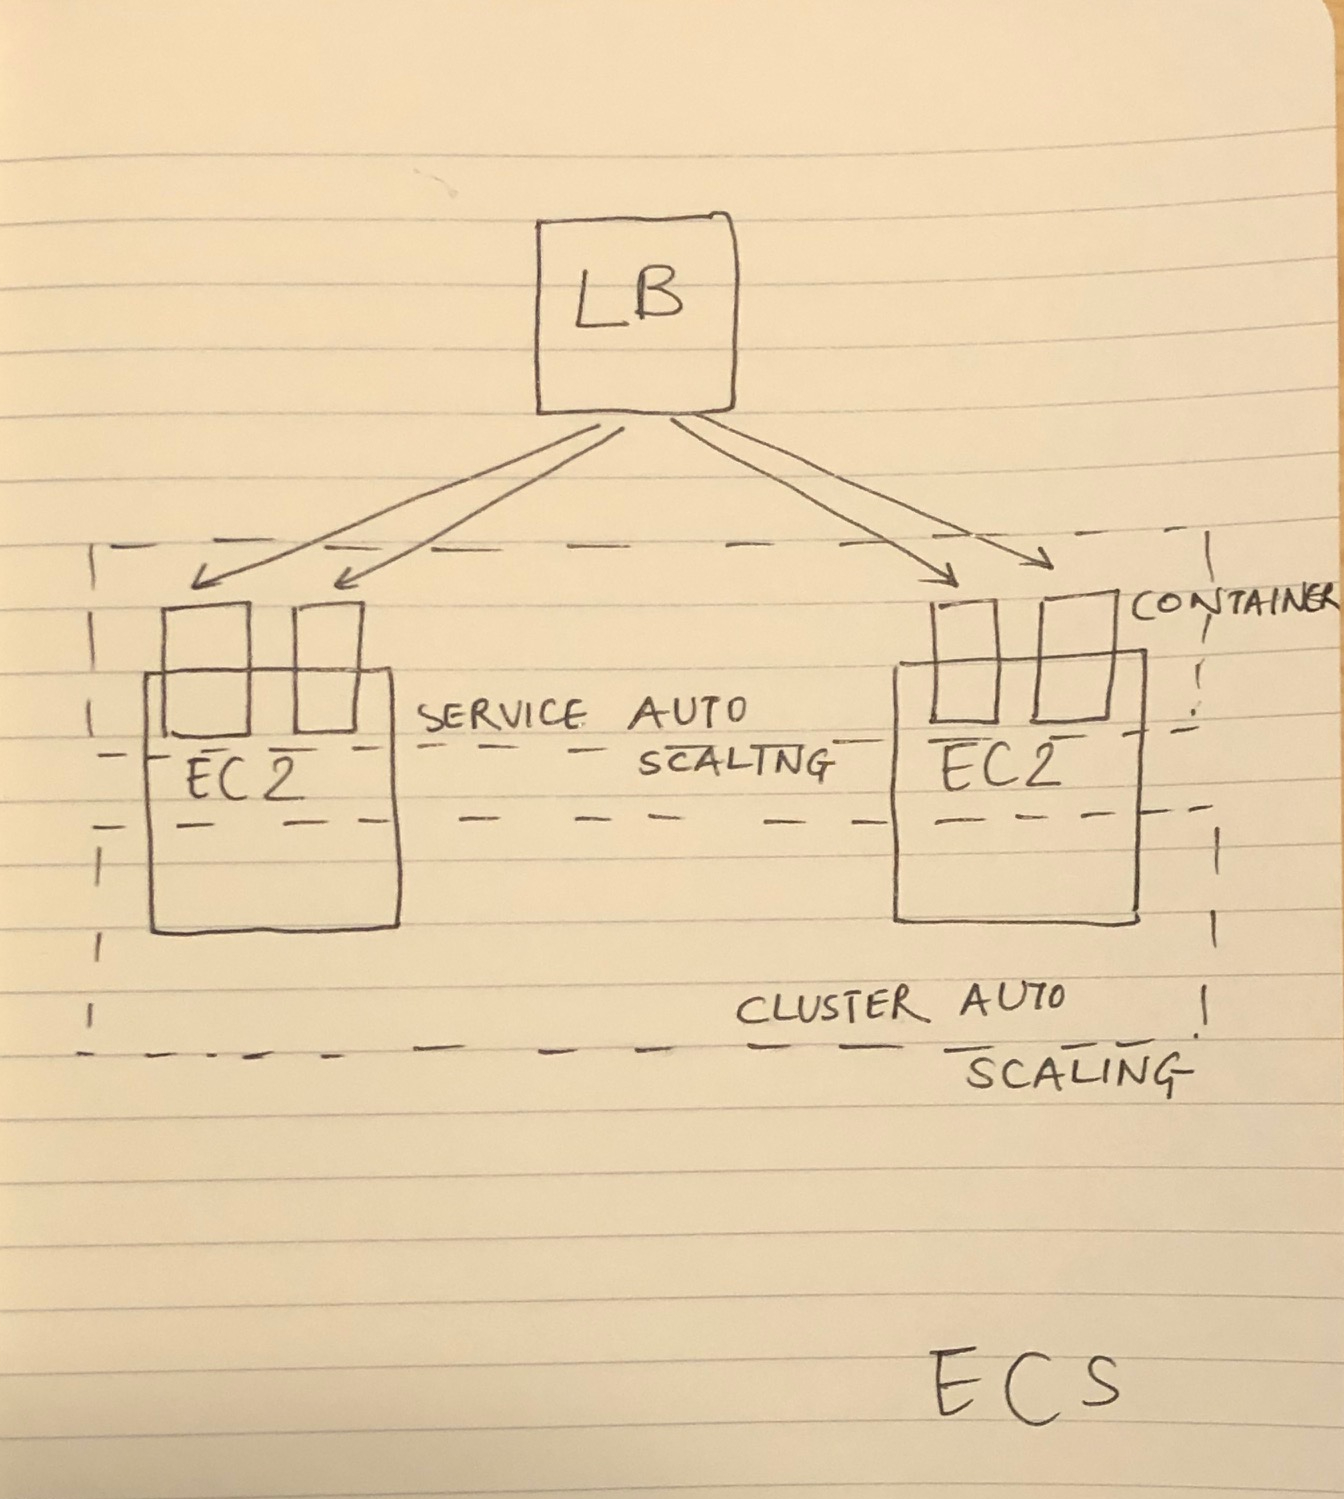 LB
CONTAINER
SERVICE AUTO
SCALING
EC2
EC2
CLUSTER AUTO
SCALING
ECS